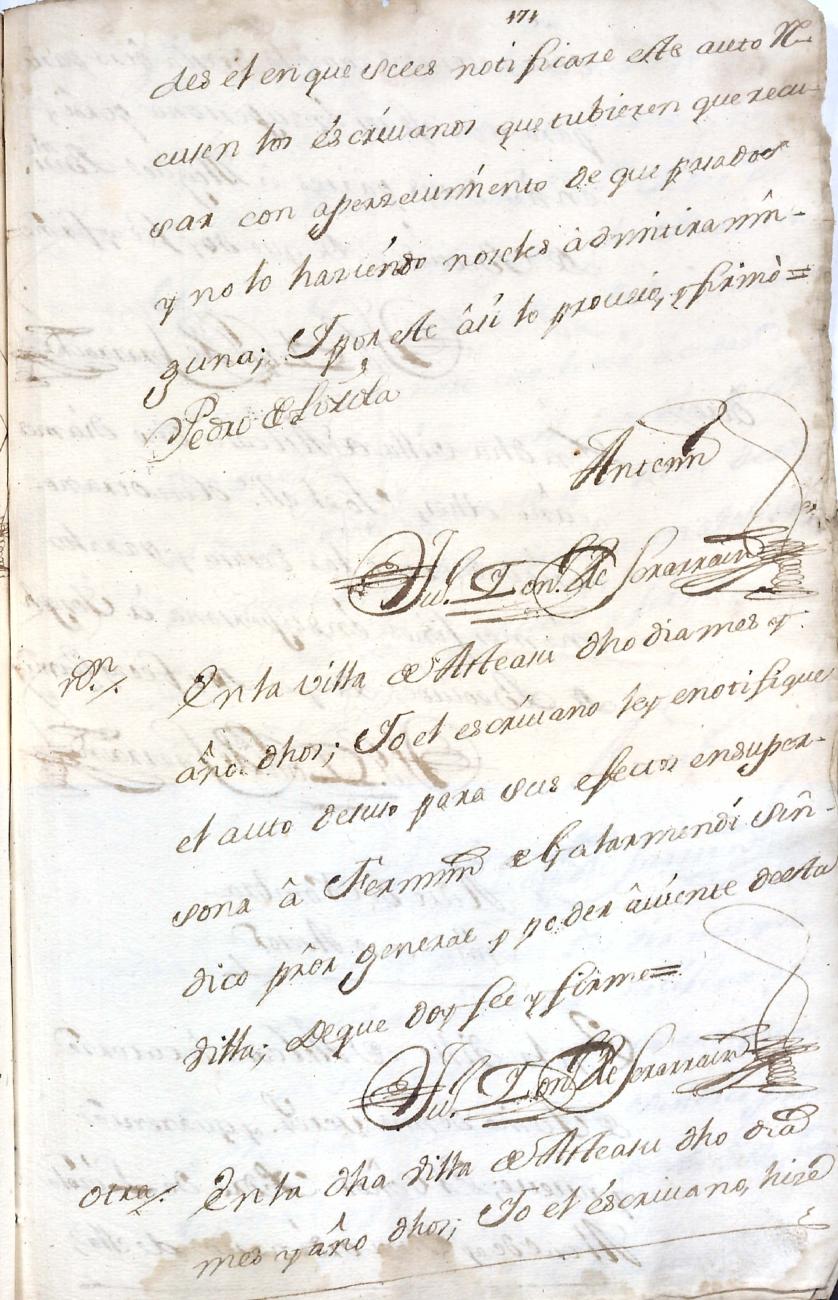 171
des el en que se les notificare este auto Re
cusen los éscriuanos que tubieren que recu-
sar con aperzeuimiento de que pasados
y no lo haciéndo no se les àdmitira nin-
guna; Y por este âsi lo proueió, y firmò=
Pedro de Loiola
Antemi
Ju.º Ign.º de Sorarrain
non./. En la villa de Asteasu dho dia mes y
año dhos; Yo el escriuano ley e notifique
el auto desuso para sus efectos en su per-
sona â Fermin de Galarmendi Sin-
dico pror general y poder âuiente de esta
Villa; de que doy feé y firme=
Ju.º Ign.º de Sorarrain
Otra/. En la dha Villa de Asteasu dho dia
mes y año dhos; Yo el éscriuano, hize